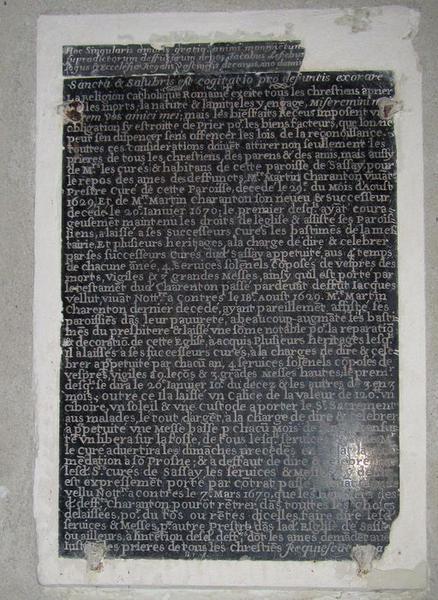 Hoc Singularis amoris gratiq. animi monumentum
supradictorum defunctorum
Sancta & Salubris est cogitatio pro defuntis exorare
La Religion Catholique Romaine excite tous les chrestiens a prier
po. les morts, la nature & lamitié les y engage, Miseremini mei
vos amici mei; mais les bienffaits Receus imposent une
obligation sy estroitte de Prier po. les bienffacteurs, que lon ne
peut sen dispencer sens offencer les lois de la reconnoissance.
touttes ces considerations doiuet attirer non seullement les
prieres de tous les chrestiens, des parens & des amis, mais aussy
de Mrs. les cures & habitans de cette paroisse de Sassay, pour
le repos des ames de deffuncts, Mre. Martin Charanton viuant
Prestre Curé de cette Paroisse, decede le 29. du Mois d'Aoust
1629. Et de Mre. Martin Charanton son neueu & Successeur,
decede le 20. Ianuier 1670; le premier desq. ayāt coura-
geusement maintenu les droits de leglise & assisté ses Paroiss
iens, a laissé a ses Successeurs Cures les bastimēs de la mes
tairie, Et plusieurs heritages, a la charge de dire & celebrer
par ses successeurs Cures dud Sassay appetuite aux 4 temps
de chacune ānee, 4. Seruices solēnels copōses de vespres des
morts, vigiles & 3 grandes Messes, ainsy quil est porté par
le testament dud Charenton passe pardeuāt deffūt Iacque
vellut, viuāt Nottre. a contres le 18. Aoust 1629. Mre. Martin
Charenton dernier decede, ayant pareillemēt assiste ses
paroissiēs dās leur pauurete, abeaucoup augmēté les basti
mēs du presbitere & laissé vne sōme notable po. la reparatiō
& decoratiō de cette Eglise, a acquis Plusieurs heritages lesq.
Il a laissés a ses successeurs cures, a la charges de dire & cele
brer a ppetuite par chacū an, 4 seruices solēnels cōpōses de
vespres, vigiles & 3 grādes Messes hautes, le premr.
desq. se dira le 20. Ianuier & les autres de 3 en 3
mois; outre ce Il a laisse vn Calice de la valeur de 120. vn
ciboire, vn soleil & vne Custode a porter le St. Sacrement
aux malades, le tout dargēt, a la charge de dire & celebrer
a ppetuite vne Messe basse p chacū Mois de lānee
te vn libera sur la Fosse, de tous lesq. seruices
le Cure aduertira les dimāches precedēs
mēdation a sō Prosne; & a deffaut de dire & celebrer
lesd. Srs. cures de Sassay les seruices & Messes
est expressemēt porté par cōtrat passé
vellu Nottre. a contres le 7. Mars 1670, que les heritiers des
d. deffts. Charanton pourōt rētrer dās touttes les choses
delaissées, po. du tōs ou rētes dicelles, faire dire lesd.
seruices & Messes, p. autre Prestre dās lad. Eglise de Sassay
ou ailleurs, a lintētion desd. deffts. dōt les ames demādēt
prieres de tous les Chrestiēs